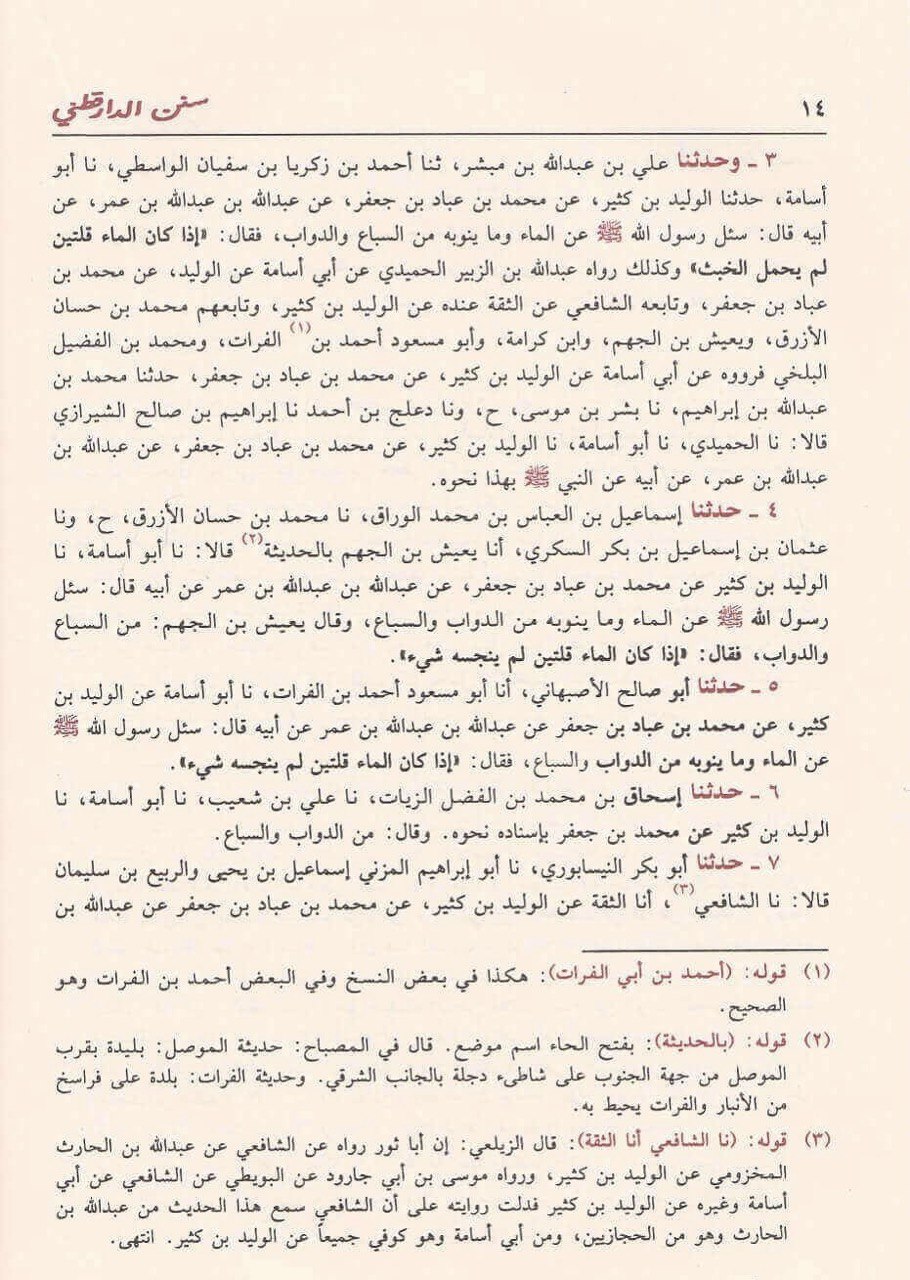 ١٤
سنن الدارقطني
٣ ـ وحدثنا علي بن عبدالله بن مبشر، ثنا أحمد بن زكريا بن سفيان الواسطي، نا أبو
أسامة، حدثنا الوليد بن كثير، عن محمد بن عباد بن جعفر، عن عبدالله بن عبدالله بن عمر، عن
أبيه قال: سئل رسول الله ﷺ عن الماء وما ينوبه من السباع والدواب، فقال: «إذا كان الماء قلتين
لم يحمل الخبث» وكذلك رواه عبدالله بن الزبير الحميدي عن أبي أسامة عن الوليد، عن محمد بن
عباد بن جعفر، وتابعه الشافعي عن الثقة عنده عن الوليد بن كثير، وتابعهم محمد بن حسان
الأزرق، ويعيش بن الجهم، وابن كرامة، وأبو مسعود أحمد بن(١) الفرات، ومحمد بن الفضيل
البلخي فرووه عن أبي أسامة عن الوليد بن كثير، عن محمد بن عباد بن جعفر، حدثنا محمد بن
عبدالله بن إبراهيم، نا بشر بن موسى، ح، ونا دعلج بن أحمد نا إبراهيم بن صالح الشيرازي
قالا: نا الحميدي، نا أبو أسامة، نا الوليد بن كثير، عن محمد بن عباد بن جعفر، عن عبدالله بن
عبدالله بن عمر، عن أبيه عن النبي ﷺ بهذا نحوه.
٤ ـ حدثنا إسماعيل بن العباس بن محمد الوراق، نا محمد بن حسان الأزرق، ح، ونا
عثمان بن إسماعيل بن بكر السكري، أنا يعيش بن الجهم بالحديثة(٢) قالا: نا أبو أسامة، نا
الوليد بن كثير عن محمد بن عباد بن جعفر، عن عبدالله بن عبدالله بن عمر عن أبيه قال: سئل
رسول الله ﷺ عن الماء وما ينوبه من الدواب والسباع، وقال يعيش بن الجهم: من السباع
والدواب، فقال: «إذا كان الماء قلتين لم ينجسه شيء».
٥ ـ حدثنا أبو صالح الأصبهاني، أنا أبو مسعود أحمد بن الفرات، نا أبو أسامة عن الوليد بن
كثير، عن محمد بن عباد بن جعفر عن عبدالله بن عبدالله بن عمر عن أبيه قال: سئل رسول الله ﷺ
عن الماء وما ينوبه من الدواب والسباع، فقال: «إذا كان الماء قلتين لم ينجسه شيء».
٦ ـ حدثنا إسحاق بن محمد بن الفضل الزيات، نا علي بن شعيب، نا أبو أسامة، نا
الوليد بن كثير عن محمد بن جعفر بإسناده نحوه. وقال: من الدواب والسباع.
٧ ـ حدثنا أبو بكر النيسابوري، نا أبو إبراهيم المزني إسماعيل بن يحيى والربيع بن سليمان
قالا: نا الشافعي(٣)، أنا الثقة عن الوليد بن كثير، عن محمد بن عباد بن جعفر عن عبدالله بن
(١) قوله: (أحمد بن أبي الفرات): هكذا في بعض النسخ وفي البعض أحمد بن الفرات وهو
الصحيح.
(٢) قوله: (بالحديثة): بفتح الحاء اسم موضع. قال في المصباح: حديثة الموصل: بليدة بقرب
الموصل من جهة الجنوب على شاطىء دجلة بالجانب الشرقي. وحديثة الفرات: بلدة على فراسخ
من الأنبار والفرات يحيط به.
(٣) قوله: (نا الشافعي أنا الثقة): قال الزيلعي: إن أبا ثور رواه عن الشافعي عن عبدالله بن الحارث
المخزومي عن الوليد بن كثير، ورواه موسى بن أبي جارود عن البويطي عن الشافعي عن أبي
أسامة وغيره عن الوليد بن كثير فدلت روايته على أن الشافعي سمع هذا الحديث من عبدالله بن
الحارث وهو من الحجازيين، ومن أبي أسامة وهو كوفي جميعاً عن الوليد بن كثير. انتهى.